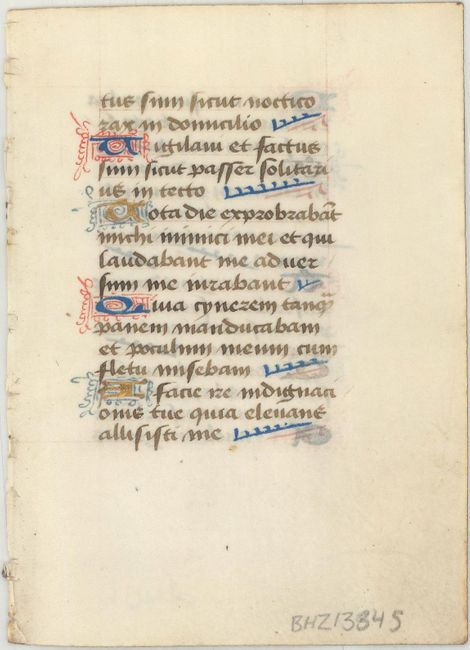 tus sum sicut noctico
rax in domicilio
Uigilavi et factus
sum sicut passer solitari
us in tecto
Tota die exprobrabāt
michi inimici mei et qui
laudabant me adver
sum me iurabant
Quia cynerem tanq̄
panem manducabam
et poculum meum cum
fletu miscebam
A facie ire indignaci
onis tue quia elevans
allisisti me
BHZ13345